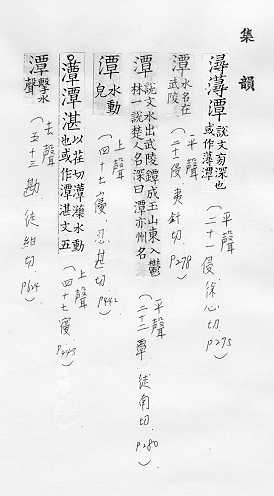 集韻
潯潯潭 說文旁深也
或作蕁潭
(平聲 二十一侵 徐心切 P275)
潭 水名在
武陵
(平聲 二十一侵 夷針切 P278)
潭 說文水出武陵鐔成玉山東入鬱
林一說楚人名深曰潭亦州名
(平聲 二十二覃 徒南切 P280)
潭 水動
皃
(上聲 四十七寑 忍甚切 P442)
潭湛 以荏切潭濼水動
也或作潭湛文五
(上聲 四十七寑 P443)
潭 擊水
聲
(去聲 五十三勘 徒紺切 P624)